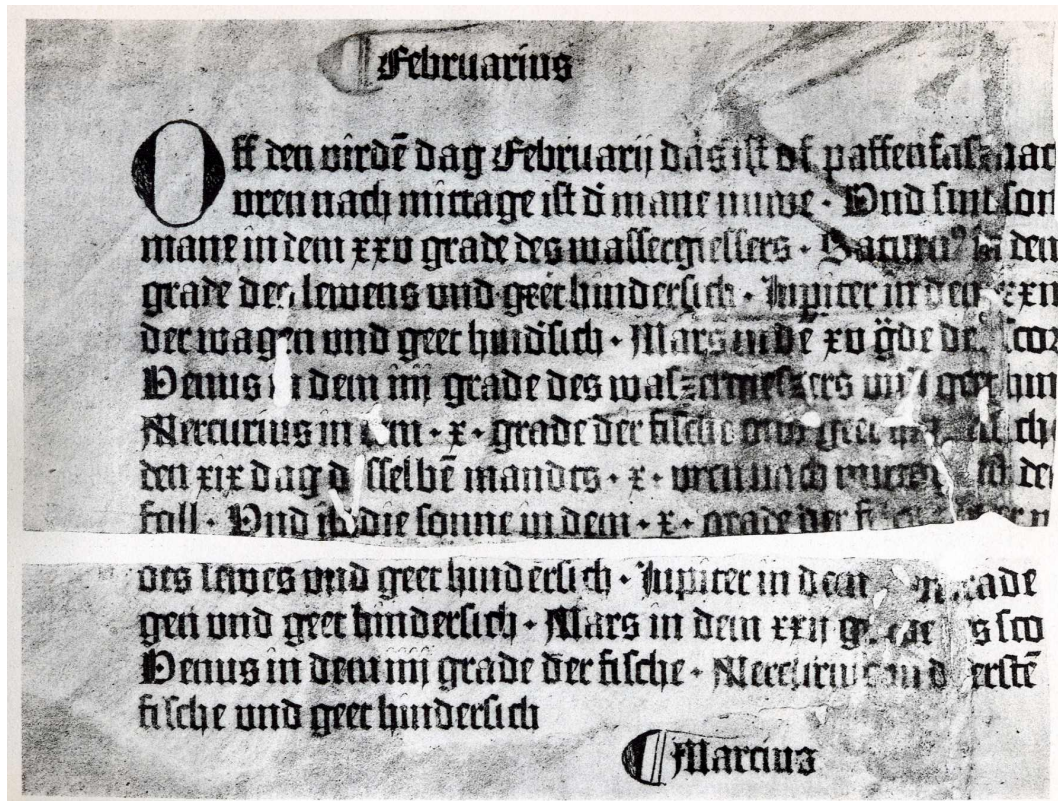 Februarius
Off den virdē dag Februarij das ist vf paffenfasznac
vren nach mittage ist d' mane nuwe · Vnd sint son
mane in dem xxv grade des wassergiessers · Saturn9 in den
grade des lewens vnd geet hindersich · Jupiter in den xxv
der wagen vnd geet hind'sich · Mars in dē xv g̈de des scor
Venus in dem iiij grade des waszergieszers vnd geet hin
Mercurius in dem · x · grade der fische vnd geet
den xix dag desselbē mandes · x · vren nach mittage ist der
foll · Vnd ist die sonne in dem · x · grade der
des lewes vnd geet hindersich · Jupiter in dem grade
gen vnd geet hindersich · Mars in dem xxij grade des sco
Venus in dem iiij grade der fische · Mercurius in d erstē
fische vnd geet hindersich
Marcius